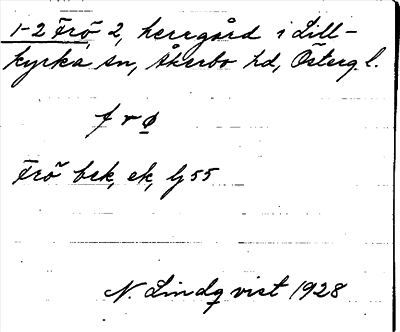 1-2 Frö, 2, herrgård i Lill-
kyrka sn, Åkerbo hd, Österg. l.
f r ø
Frö bek, ek, lj 55
N. Lindqvist 1928